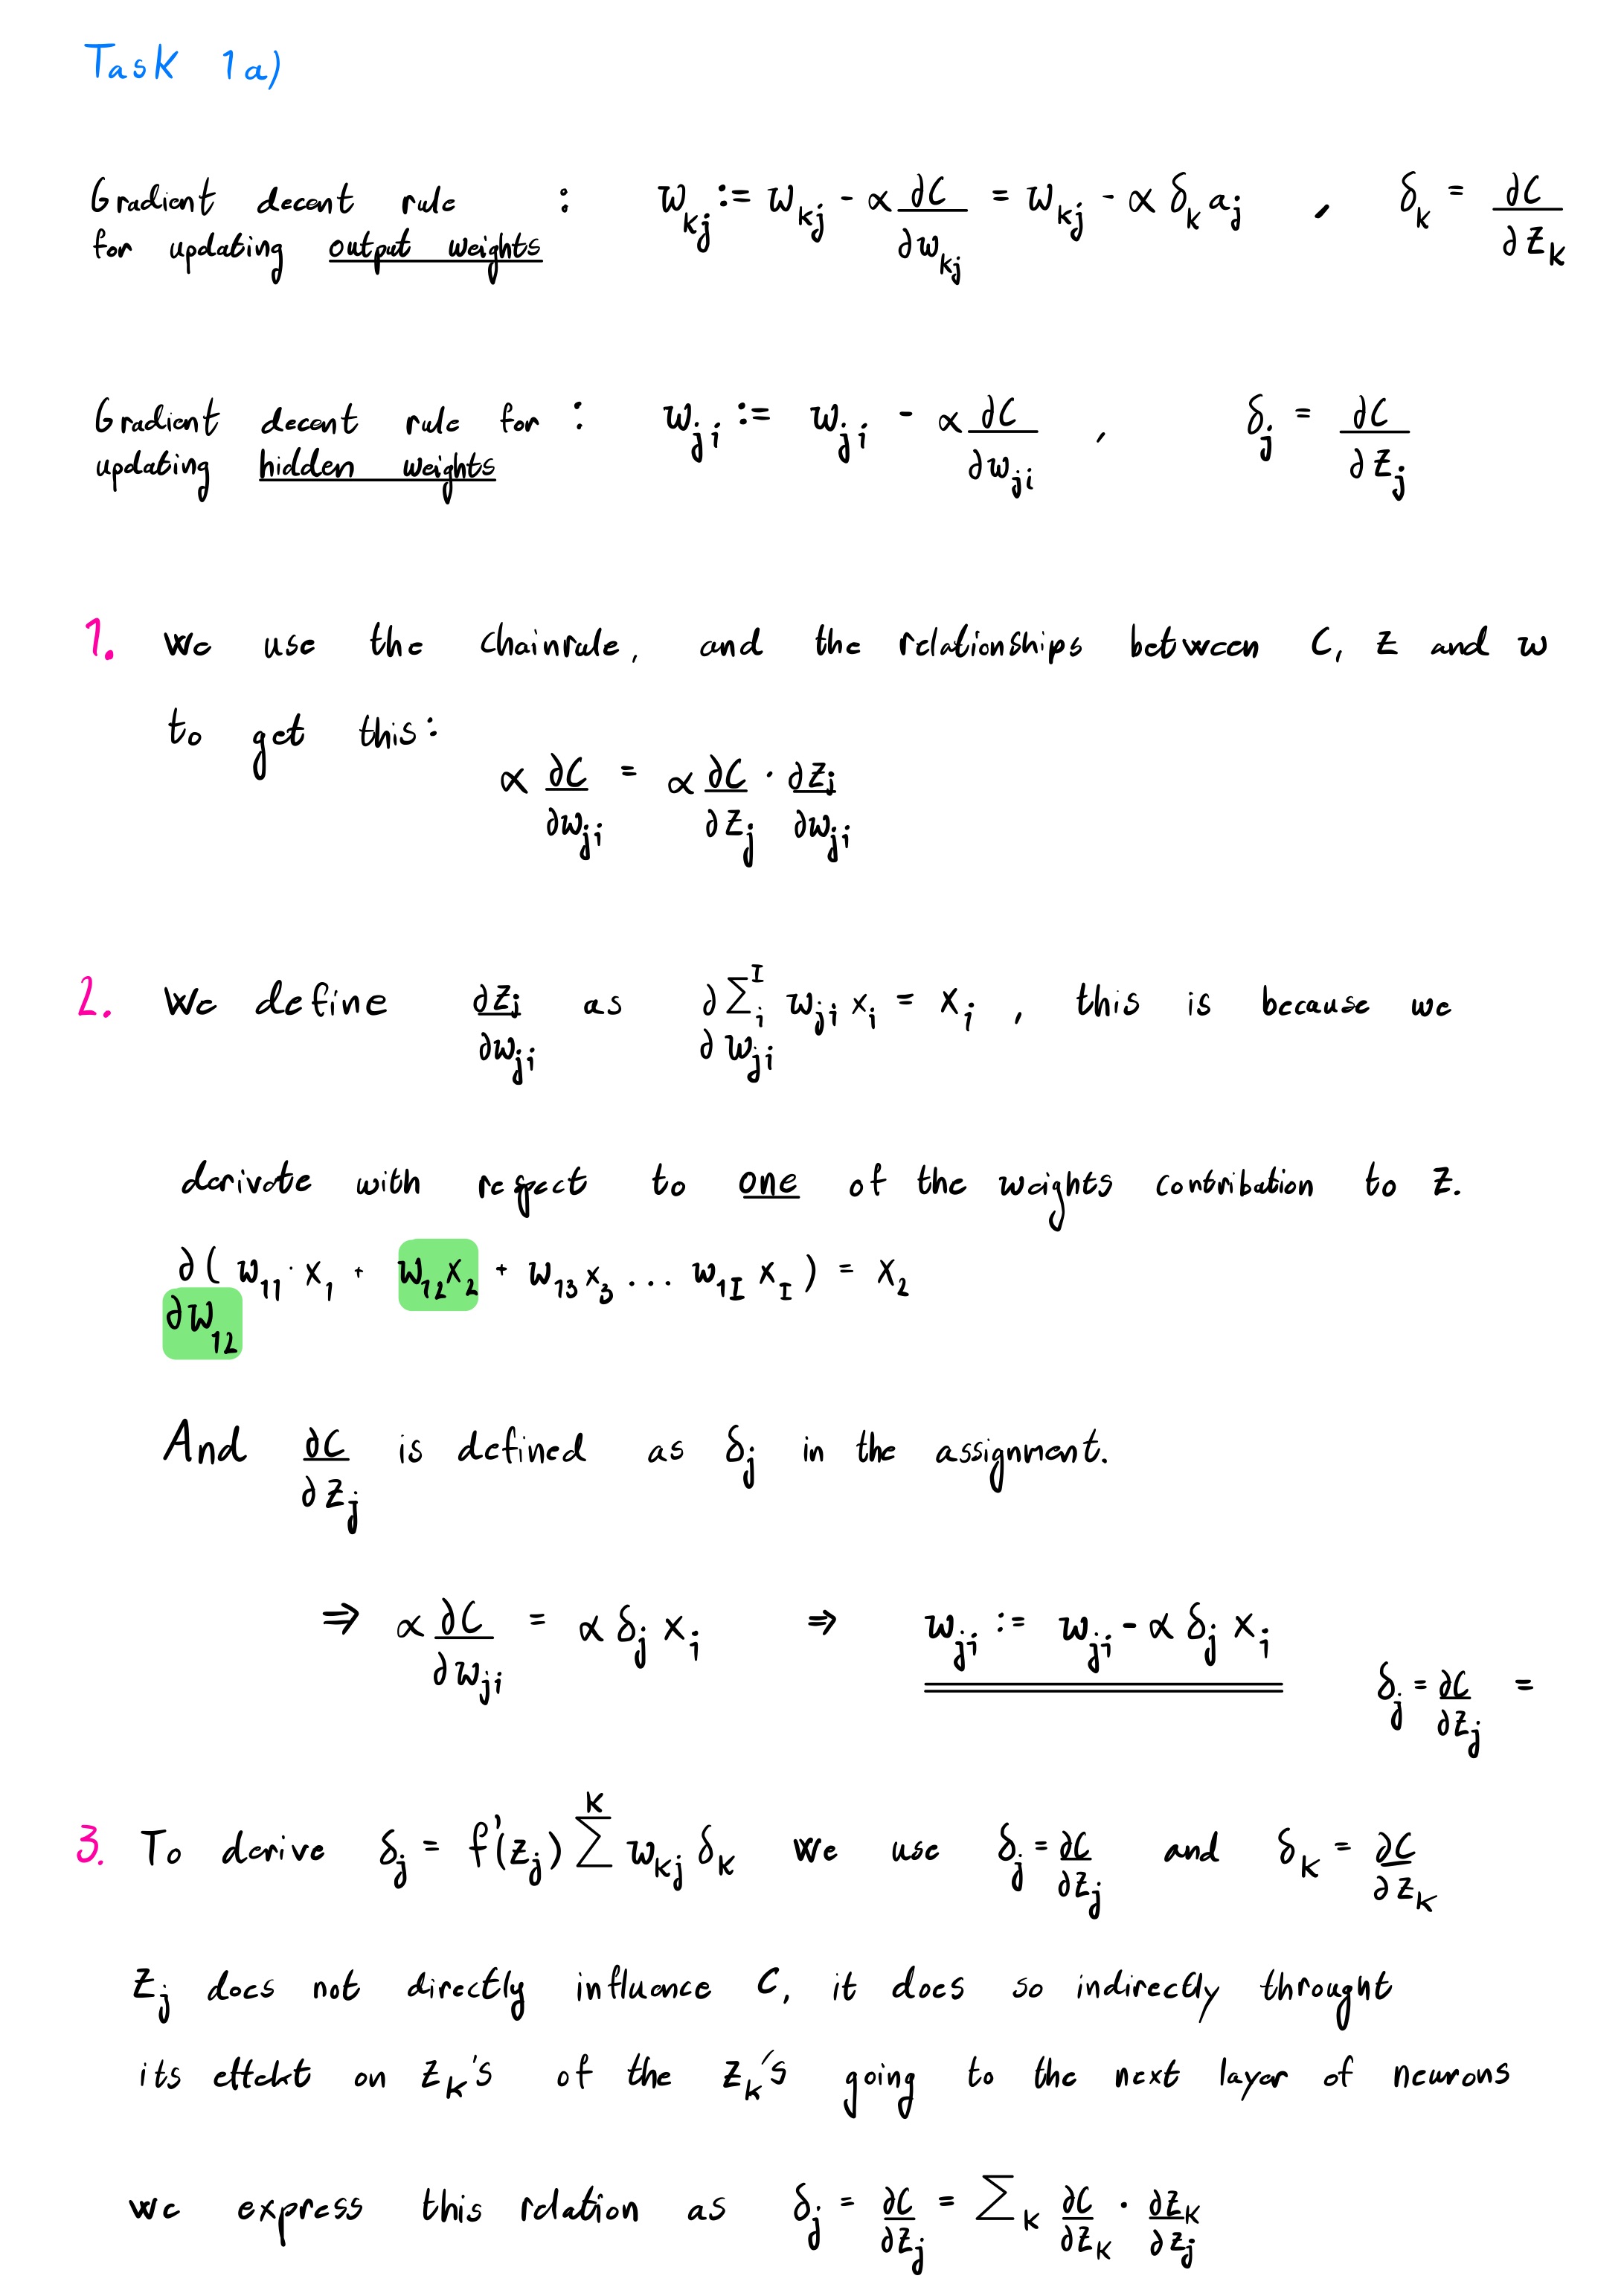 Task 1a)
Gradient decent rule : w_kj := w_kj - α ∂C/∂w_kj = w_kj - α δ_k a_j , δ_k = ∂C/∂z_k
for updating output weights
Gradient decent rule for : w_ji := w_ji - α ∂C/∂w_ji , δ_j = ∂C/∂z_j
updating hidden weights
1. We use the chainrule, and the relationships between C, z and w
to get this:
α ∂C/∂w_ji = α ∂C/∂z_j · ∂z_j/∂w_ji
2. We define ∂z_j/∂w_ji as ∂ Σ_i^I w_ji x_i / ∂w_ji = x_i , this is because we
derivate with respect to one of the weights contribation to z.
∂( w_11 · x_1 + w_12 x_2 + w_13 x_3 ... w_1I x_I ) / ∂w_12 = x_2
And ∂C/∂z_j is defined as δ_j in the assignment.
⇒ α ∂C/∂w_ji = α δ_j x_i ⇒ w_ji := w_ji - α δ_j x_i
δ_j = ∂C/∂z_j =
3. To derive δ_j = f'(z_j) Σ^K w_kj δ_k we use δ_j = ∂C/∂z_j and δ_k = ∂C/∂z_k
z_j does not directly influence C, it does so indirectly throught
its effekt on z_k's of the z_k's going to the next layer of neurons
we express this relation as δ_j = ∂C/∂z_j = Σ_k ∂C/∂z_k · ∂z_k/∂z_j